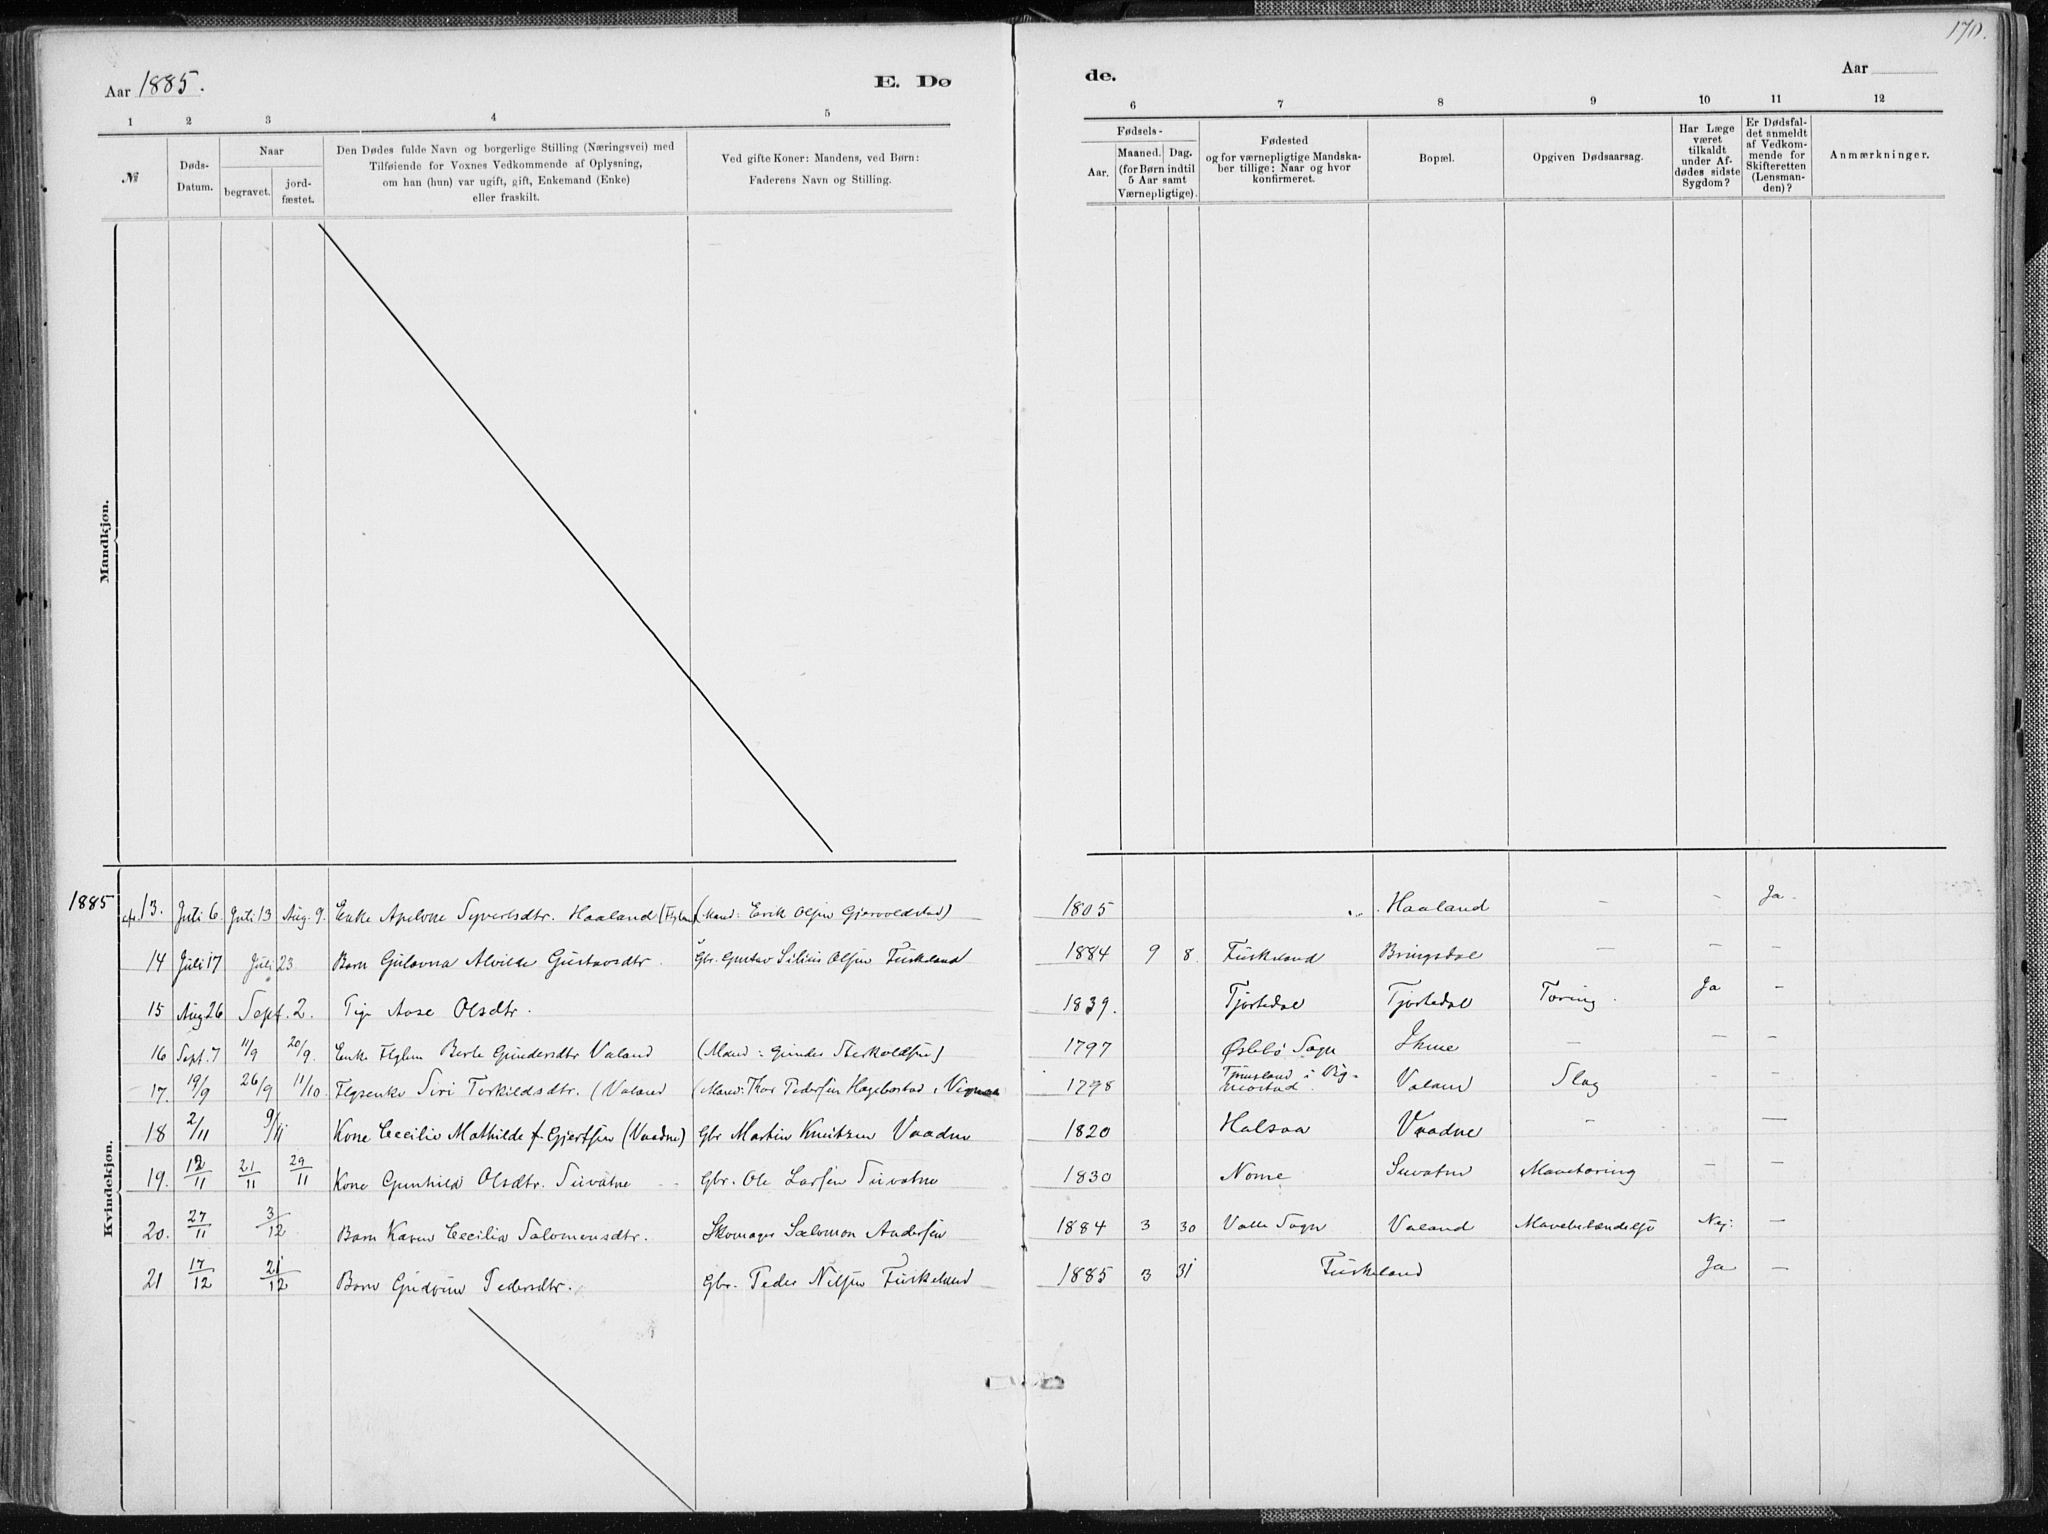 170.
Aar 1885.
E. Dø
de.
Aar
1 2 3 4 5 6 7 8 9 10 11 12
№
Døds-Datum.
Naar
begravet.
jord-fæstet.
Den Dødes fulde Navn og borgerlige Stilling (Næringsvei) med
Tilføiende for Voxnes Vedkommende af Oplysning,
om han (hun) var ugift, gift, Enkemand (Enke)
eller fraskilt.
Ved gifte Koner: Mandens, ved Børn:
Faderens Navn og Stilling.
Fødsels-
Aar.
Maaned. Dag.
(for Børn indtil
5 Aar samt
Værnepligtige).
Fødested
og for værnepligtige Mandska-
ber tillige: Naar og hvor
konfirmeret.
Bopæl.
Opgiven Dødsaarsag.
Har Læge
været
tilkaldt
under Af-
dødes sidste
Sygdom?
Er Dødsfal-
det anmeldt
af Vedkom-
mende for
Skifteretten
(Lensman-
den)?
Anmærkninger.
Mandkjøn.
Kvindekjøn.
1885
13. Juli 6. Juli 13 Aug. 9. Enke Apelone Syvertsdtr. Haaland (Mand: Erik Olsen Gjervoldstad) 1805 Haaland – – Ja
14 Juli 17 Juli 23 Barn Gulovna Alvilde Gustavsdtr. Gbr. Gustav Silius Olsen Fuskeland 1884 9 8. Fuskeland Bringsdal – – –
15 Aug 26 Sept. 2. Pige Aase Olsdtr. 1839. Tjortedal Tjortedal Tæring. Ja –
16 Sept. 7 11/9 20/9. Enke Berte Gundersdtr Valand (Mand: Gunder Sterkoldsen) 1797 Øslebø Sogn Ihme – – –
17. 19/9 26/9 11/10 Siri Terkildsdtr. (Valand (Mand: Thor Pedersen Hagebostad i 1798 Valand Slag – –
18 2/11 9/11 Kone Cecilie Mathilde f. Gjertsen (Vaadne) Gbr Martin Knutzen Vaadne 1820 Halsaa Vaadne – –
19. 12/11 21/11 29/11 Kone Gunhild Olsdtr. Suvatne Gbr. Ole Larsen Suvatne 1830 Nome Suvatne Mavetæring – –
20. 27/11 3/12 Barn Karen Cecilia Salomonsdtr. Skomager Salomon Andersen 1884 3 30 Valle Sogn Valand Mavebetændelse Nej. –
21 17/12 21/12 Barn Gudvine Pedersdtr. Gbr. Peder Nilsen Fuskeland 1885 3 31 Fuskeland Ja –